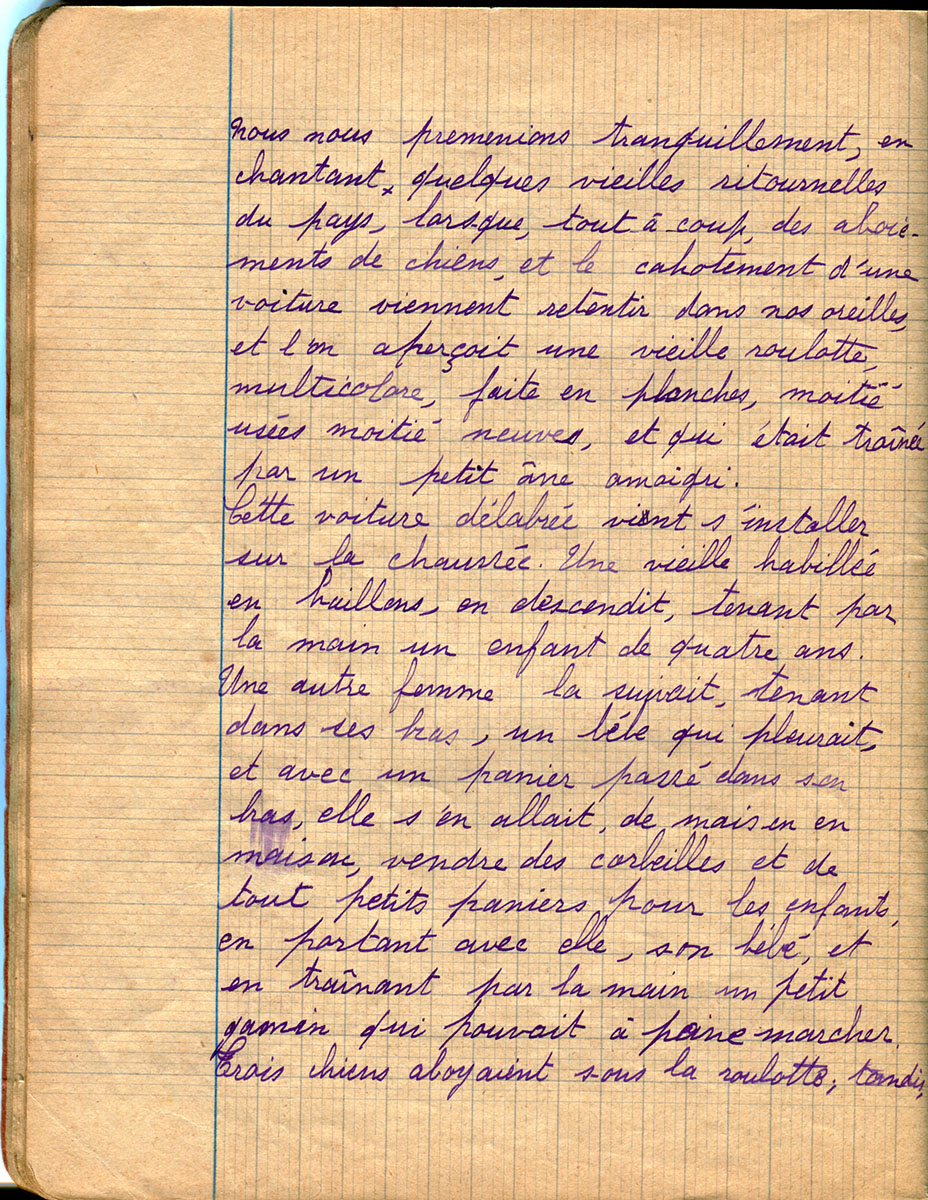 nous nous premenions tranquillement, en
chantant, quelques vieilles ritournelles
du pays, lorsque, tout-à-coup, des aboie-
ments de chiens, et le cahotement d'une
voiture viennent retentir dans nos oreilles,
et l'on aperçoit une vieille roulotte,
multicolore, faite en planches, moitié
usées moitié neuves, et qui était traînée
par un petit âne amaigri.
Cette voiture délabrée vient s'installer
sur la chaussée. Une vieille habillée
en haillons, en descendit, tenant par
la main un enfant de quatre ans.
Une autre femme la suivait, tenant
dans ses bras, un bébé qui pleurait,
et avec un panier passé dans son
bras, elle s'en allait, de maison en
maison, vendre des corbeilles et de
tout petits paniers pour les enfants,
en portant avec elle, son bébé, et
en traînant par la main un petit
gamin qui pouvait à peine marcher.
Trois chiens aboyaient sous la roulotte; tandis,